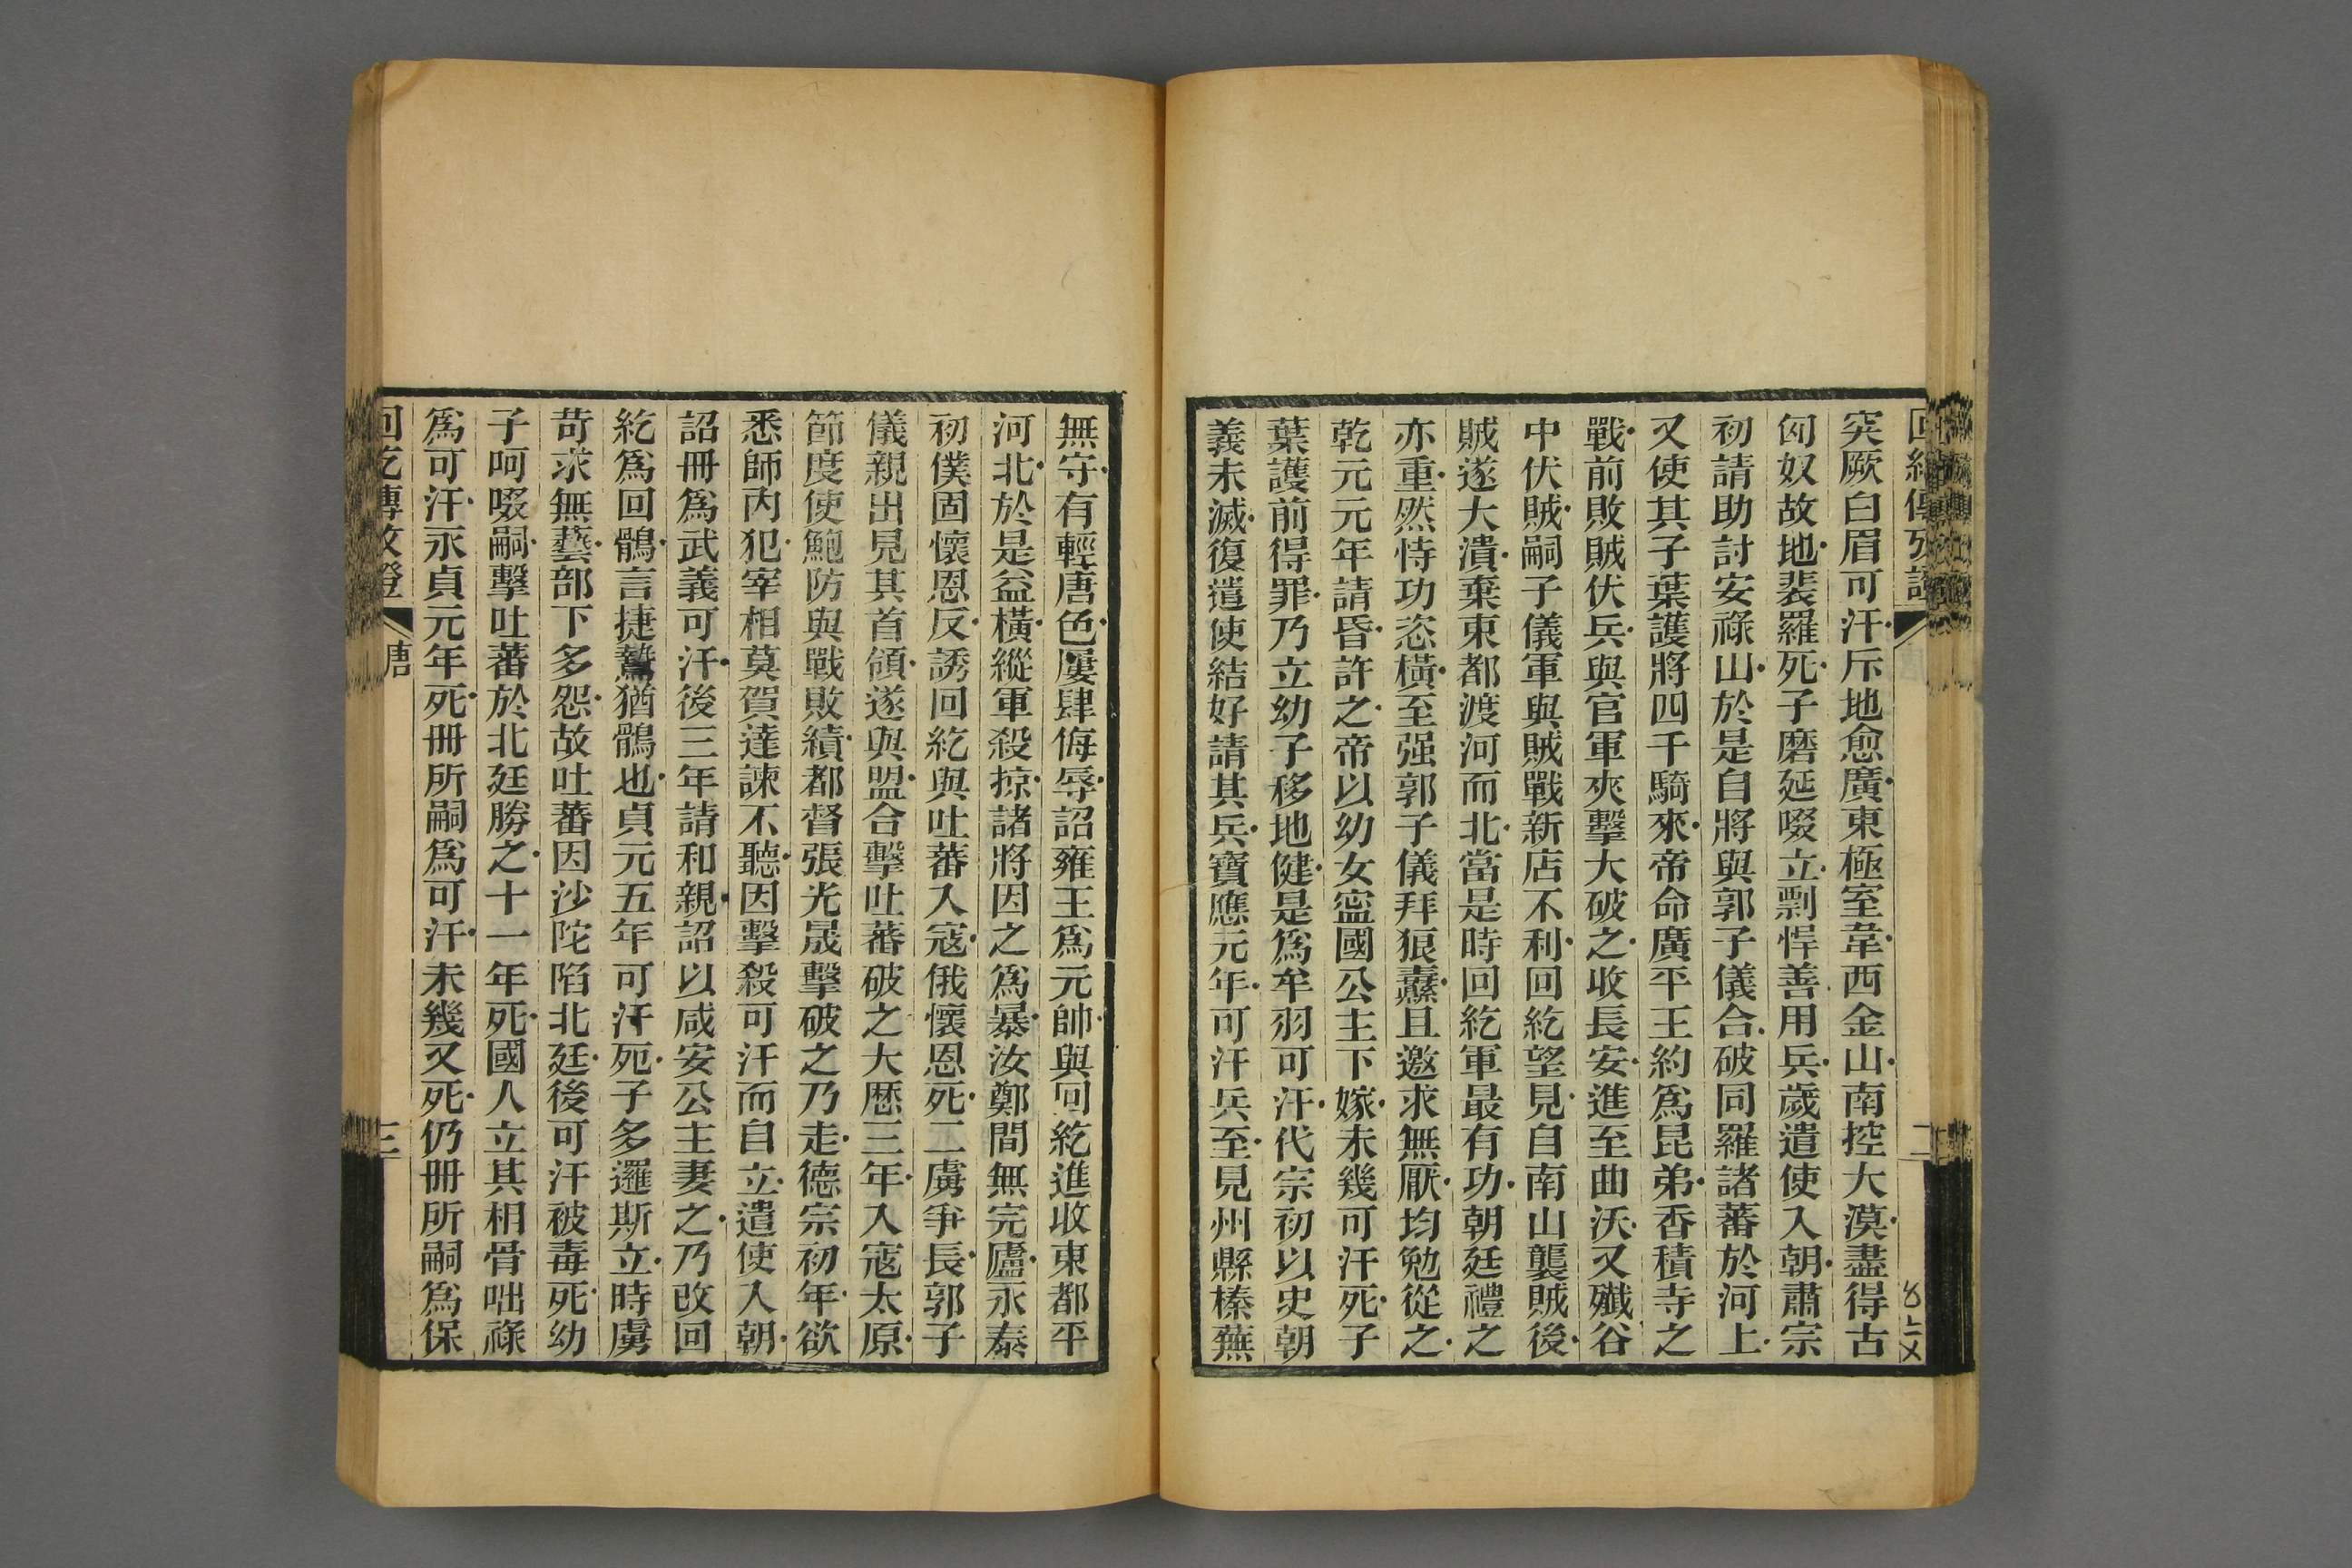 突厥白眉可汗斥地愈廣東極室韋西金山南控大漠盡得古
匈奴故地裴羅死子磨延啜立剽悍善用兵歲遣使入朝肅宗
初請助討安祿山於是自將與郭子儀合破同羅諸蕃於河上
又使其子葉護將四千騎來帝命廣平王約爲昆弟香積寺之
戰前敗賊伏兵與官軍夾擊大破之收長安進至曲沃又殲谷
中伏賊嗣子儀軍與賊戰新店不利回紇望見自南山襲賊後
賊遂大潰棄東都渡河而北當是時回紇軍最有功朝廷禮之
亦重然恃功恣橫至强郭子儀拜狼纛且邀求無厭均勉從之
乾元元年請昏許之帝以幼女寍國公主下嫁未幾可汗死子
葉護前得罪乃立幼子移地健是爲牟羽可汗代宗初以史朝
義未滅復遣使結好請其兵寶應元年可汗兵至見州縣榛蕪
無守有輕唐色屢肆侮辱詔雍王爲元帥與回紇進收東都平
河北於是益橫縱軍殺掠諸將因之爲暴汝鄭間無完廬永泰
初僕固懷恩反誘回紇與吐蕃入寇俄懷恩死二虜爭長郭子
儀親出見其首領遂與盟合擊吐蕃破之大歷三年入寇太原
節度使鮑防與戰敗績都督張光晟擊破之乃走德宗初年欲
悉師内犯宰相莫賀達諫不聽因擊殺可汗而自立遣使入朝
詔冊爲武義可汗後三年請和親詔以咸安公主妻之乃改回
紇爲回鶻言捷鷙猶鶻也貞元五年可汗死子多邏斯立時虜
苛求無藝部下多怨故吐蕃因沙陀陷北廷後可汗被毒死幼
子呵啜嗣擊吐蕃於北廷勝之十一年死國人立其相骨咄祿
爲可汗永貞元年死冊所嗣爲可汗未幾又死仍冊所嗣爲保
唐
三